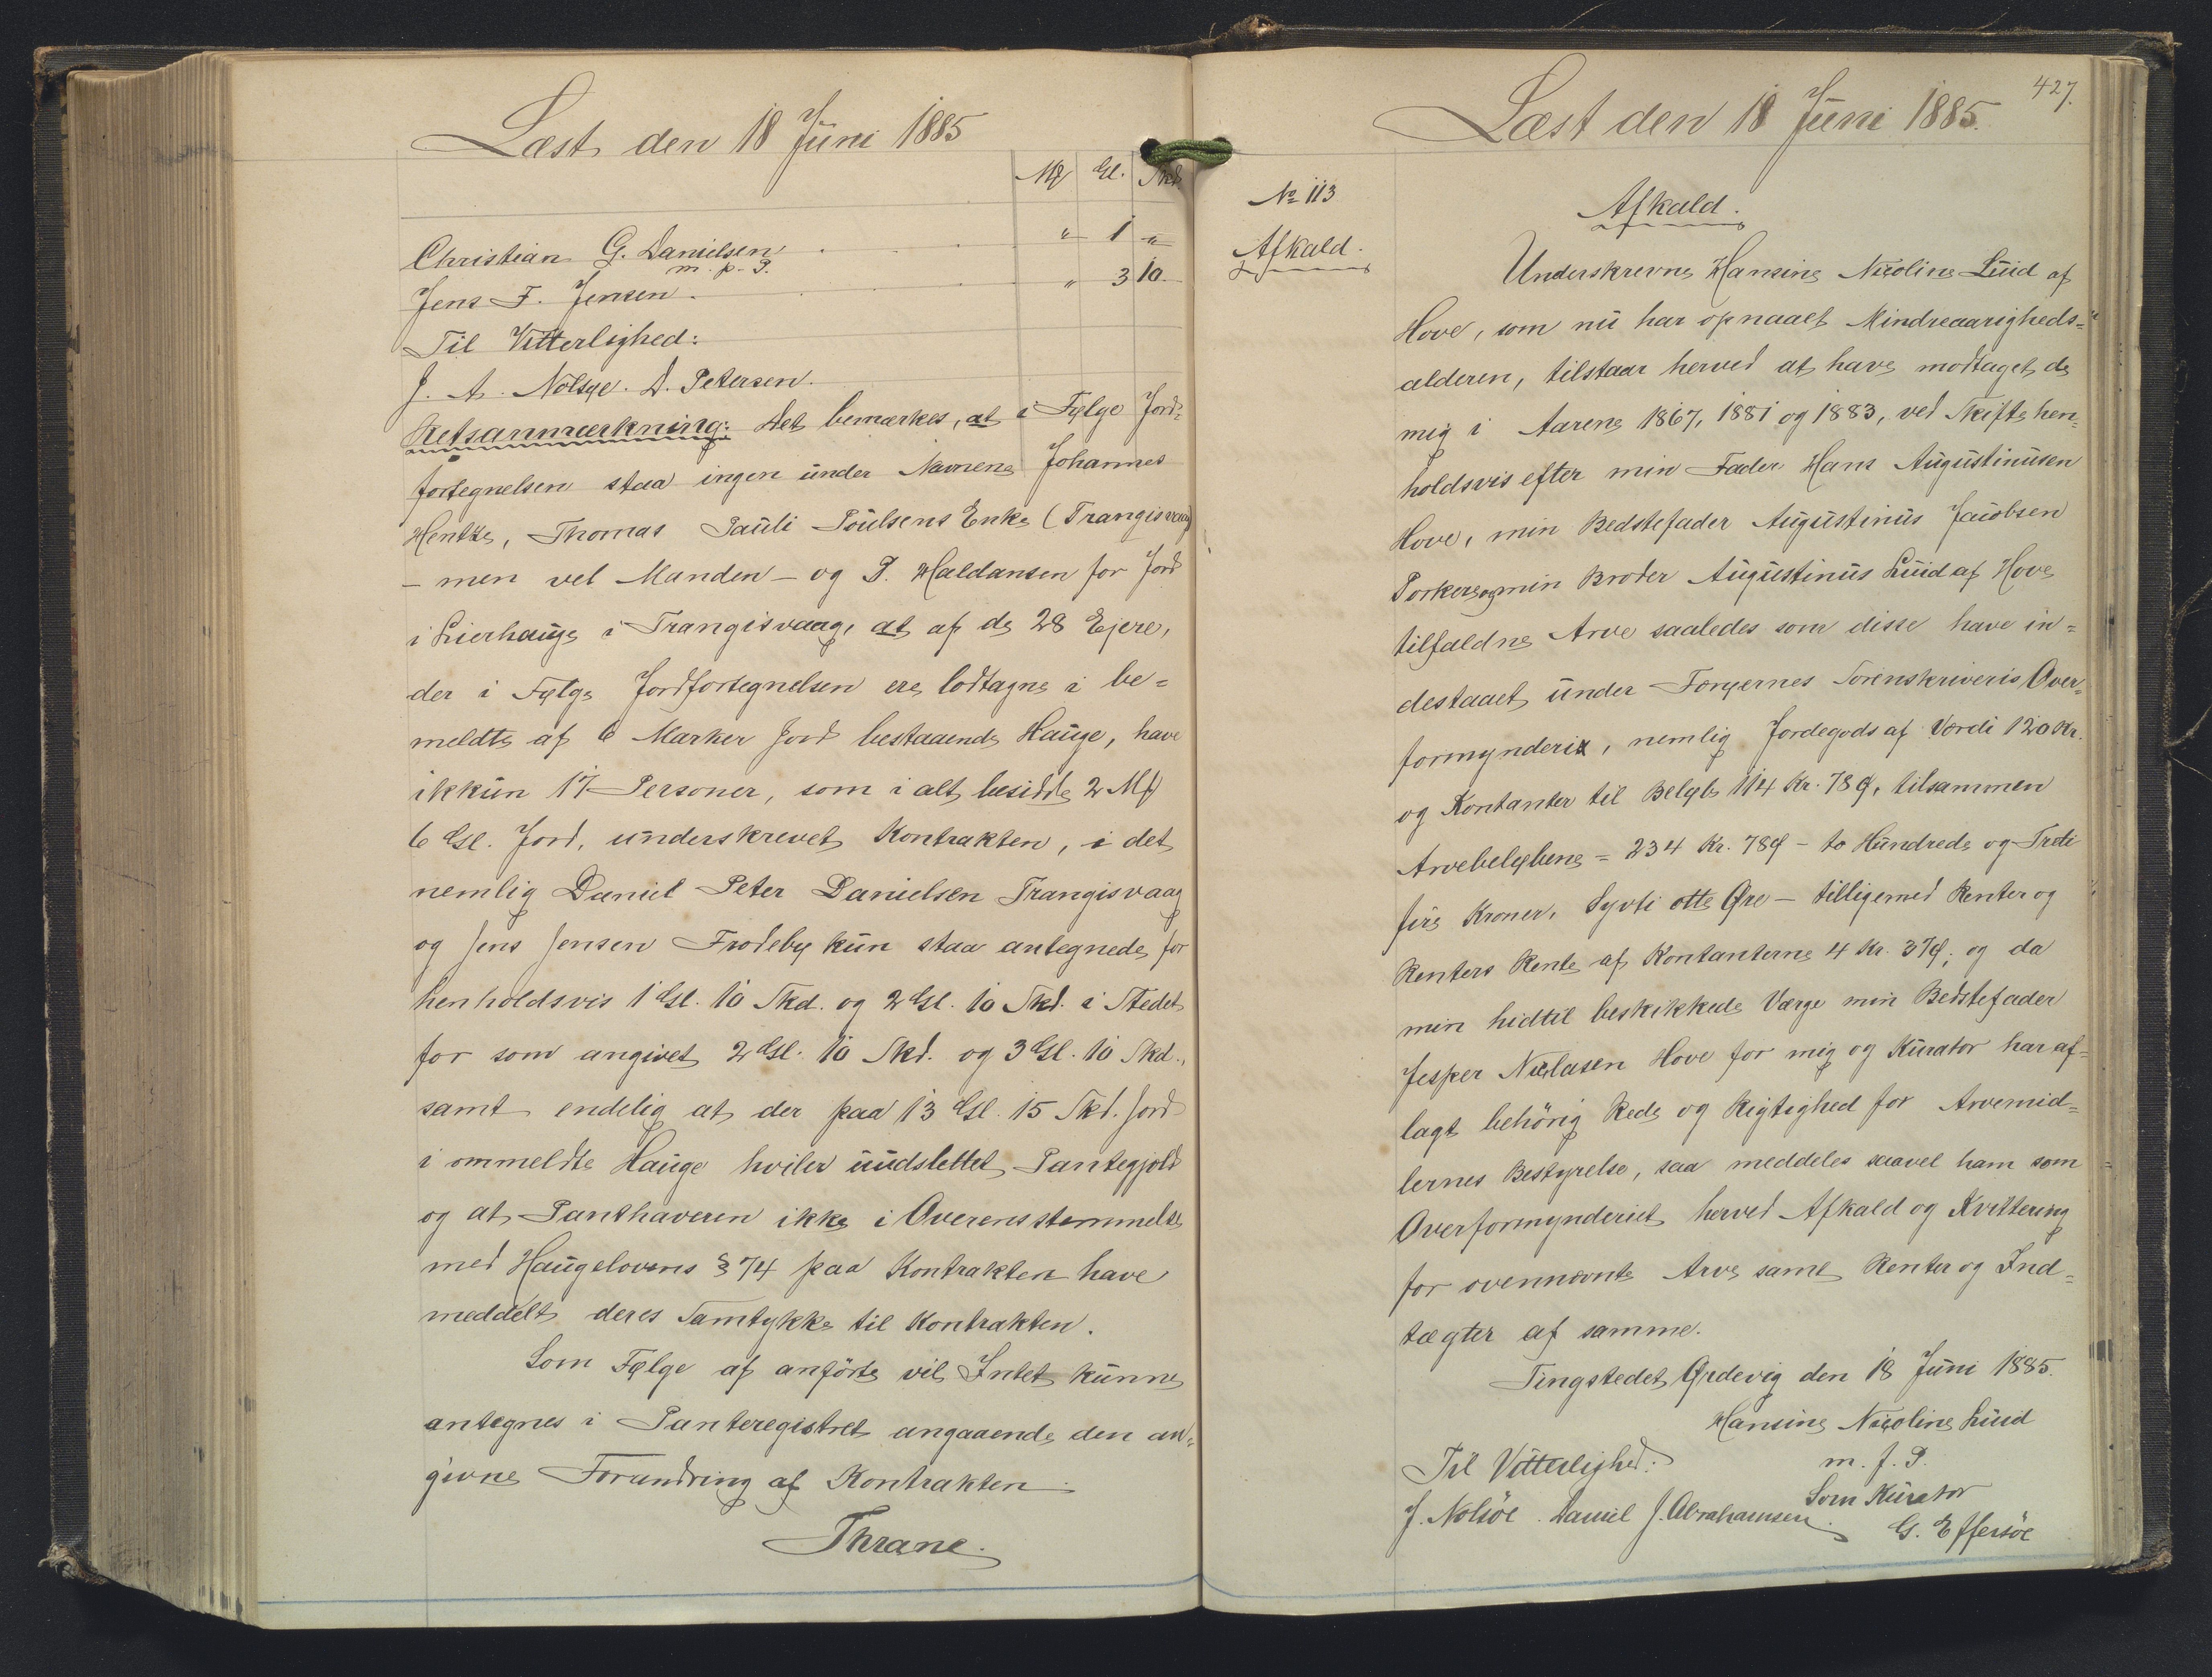 Læst den 18 Juni 1885
Mk Gl. Skd
Christian G. Danielsen " 1 "
m. p. P.
Jens F. Jensen. " 3 10.
Til Vitterlighed:
J. A. Nolsøe. D. Petersen.
Retsanmærkning: Det bemærkes, at i Følge Jord-
fortegnelsen staa ingen under Navnene Johannes
Hentze, Thomas Pauli Poulsens Enke (Trangisvaag)
- men vel Manden - og P. Haldansen for Jord
i Lierhauge i Trangisvaag, at af de 28 Ejere,
der i Følge Jordfortegnelsen ere lodtagne i be=
meldte af 6 Marker Jord bestaaende Hauge, have
ikkun 17 Personer, som i alt besidde 2 Mk
6 Gl. Jord, underskrevet Kontrakten, i det
nemlig Daniel Peter Danielsen Trangisvaag
og Jens Jensen Frodeby kun staa antegnede for
henholdsvis 1 Gl. 10 Skd. og 2 Gl. 10 Skd. i Stedet
for som angivet 2 Gl. 10 Skd. og 3 Gl. 10 Skd.,
samt endelig at der paa 13 Gl. 15 Skd. Jord
i ommeldte Hauge hviler uudslettet Pantegjæld
og at Panthaveren ikke i Overensstemmelse
med Haugelovens § 74 paa Kontrakten have
meddelt deres Samtykke til Kontrakten.
Som Følge af anførte vil Intet kunne
antegnes i Panteregistret angaaende den an=
givne Forandring af Kontrakten.
Thrane.
427.
Læst den 18 Juni 1885.
No 113
Afkald.
Afkald.
Underskrevne Hansine Nicoline Luid af
Hove, som nu har opnaaet Mindreaarigheds=
alderen, tilstaar herved at have modtaget de
mig i Aarene 1867, 1881 og 1883, ved Skifte hen=
holdsvis efter min Fader Hans Augustinusen
Hove, min Bedstefader Augustinus Jacobsen
Porkere og min Broder Augustinus Luid af Hove
tilfaldne Arve saaledes som disse have in=
destaaet under Færøernes Sorenskriveris Over=
formynderi, nemlig Jordegods af Værdi 120 Kr.
og Kontanter til Beløb 114 Kr. 78 Ø, tilsammen
Arvebeløbene = 234 Kr. 78 Ø - to Hundrede og Treti
fire Kroner, Syvti otte Øre - tilligemed Renter og
Renters Rente af Kontanterne 4 Kr. 37 Ø; og da
min hidtil beskikkede Værge min Bedstefader
Jesper Niclasen Hove for mig og Kurator har af=
lagt behörig Rede og Rigtighed for Arvemid=
lernes Bestyrelse, saa meddeles saavel ham som
Overformynderiet herved Afkald og Kvittering
for ovennævnte Arve samt Renter og Ind=
tægter af samme.
Tingstedet Ørdevig den 18 Juni 1885.
Hansine Nicoline Luid
m. f. P.
Til Vitterlighed: Som Kurator
J. Nolsöe. Daniel J. Abrahamsen. G. Effersöe